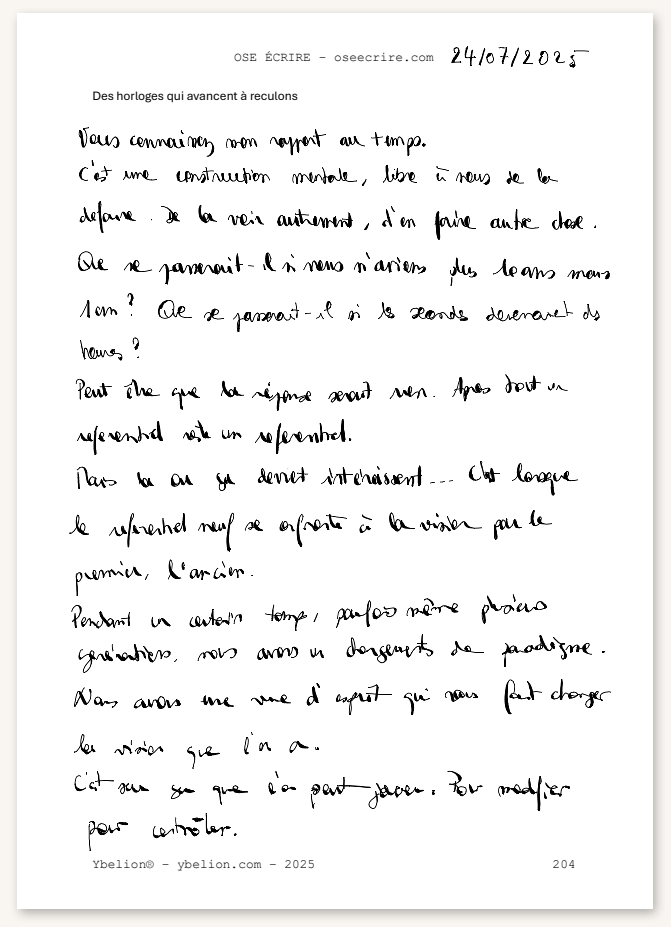 OSE ÉCRIRE – oseecrire.com 24/07/2025
Des horloges qui avancent à reculons
Vous connaissez mon rapport au temps.
C'est une construction mentale, libre à nous de la
défaire. De la voir autrement, d'en faire autre chose.
Que se passerait-il si nous n'avions plus 10 ans mais
1 an ? Que se passerait-il si les secondes devenaient des
heures ?
Peut être que la réponse serait rien. Après tout un
referentiel reste un referentiel.
Mais là où ça devient intéressant... C'est lorsque
le referentiel neuf se confronte à la vision par le
premier, l'ancien.
Pendant un certain temps, parfois même plusieurs
générations, nous avons un changements de paradigme.
Nous avons une vue d'esprit qui nous fait changer
la vision que l'on a.
C'est sur ça que l'on peut jouer. Pour modifier
pour contrôler.
Ybelion® – ybelion.com – 2025 204